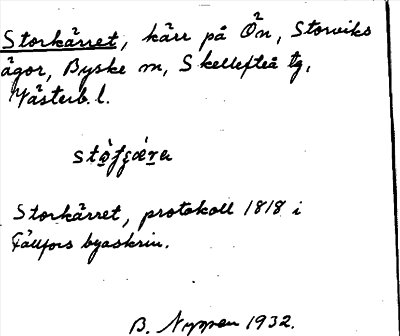 Storkärret, kärr på Ön, Storviks
ägor, Byske sn, Skellefteå tg,
Västerb. l.
Storkärret, protokoll 1818 i
Fällfors byaskrin.
B. Nyman 1932.